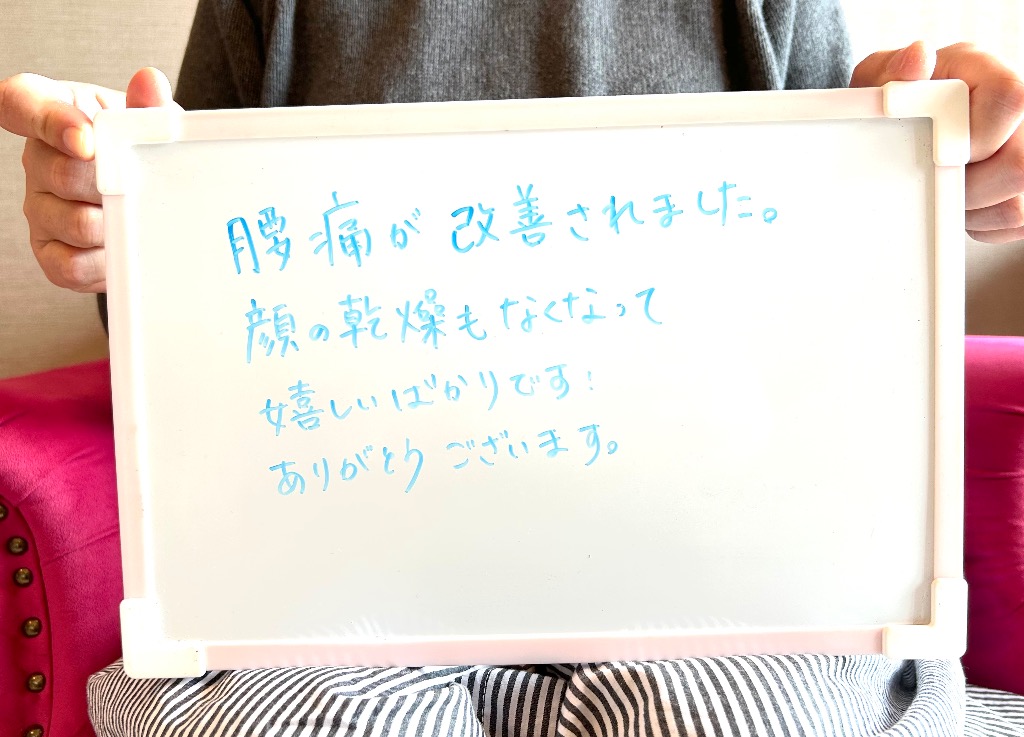 腰痛が改善されました。
顔の乾燥もなくなって
嬉しいばかりです!
ありがとうございます。